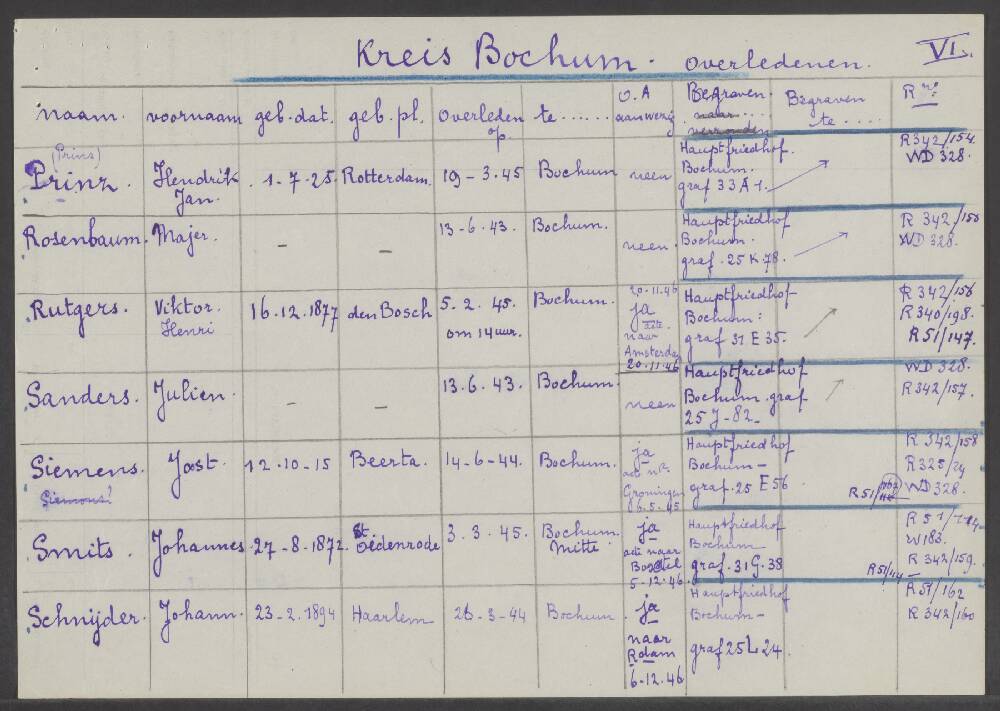 Kreis Bochum. overledenen. VI.
naam. voornaam geb. dat. geb. pl. Overleden op. te ...... O.A aanwezig Begraven. naar .... verzonden Begraven te .... R nr:
(Prins)
Prinz. Hendrik Jan. 1-7-25 Rotterdam. 19-3.45 Bochum neen Hauptfriedhof. Bochum. graf 33 A 1. R342/154. WD 328.
Rosenbaum. Majer. - - 13-6.43. Bochum. neen. Hauptfriedhof Bochum. graf. 25 K 78. R 342/155 WD 328.
Rutgers. Viktor. Henri 16.12.1877 den Bosch 5. 2. 45. om 14 uur. Bochum. 20.11.46 ja acte. naar Amsterdam 20.11.46 Hauptfriedhof Bochum: graf 31 E 35. R 342/156 R 340/198. R51/147.
Sanders. Julien. - - 13.6.43. Bochum. neen Hauptfriedhof Bochum. graf 25 J-82_ WD 328. R342/157.
Siemens. Joost. 12.10-15 Beerta. 14-6-44. Bochum. ja acte nr. Groningen 6.5.45 Hauptfriedhof Bochum - graf. 25 E 56 R51/ R 342/158 R325/24 WD 328.
Siemons?
Smits. Johannes 27-8.1872. St Oedenrode 3. 3. 45. Bochum Mitte ja acte naar Boxtel 5-12.46. Hauptfriedhof Bochum graf. 31 G. 38 R51/114 W183. R 342/159.
Schnijder. Johann. 23-2.1894 Haarlem 26-3-44 Bochum. ja naar Rdam 6-12.46 Hauptfriedhof Bochum- graf 25 L 24. R51/162 R 342/160